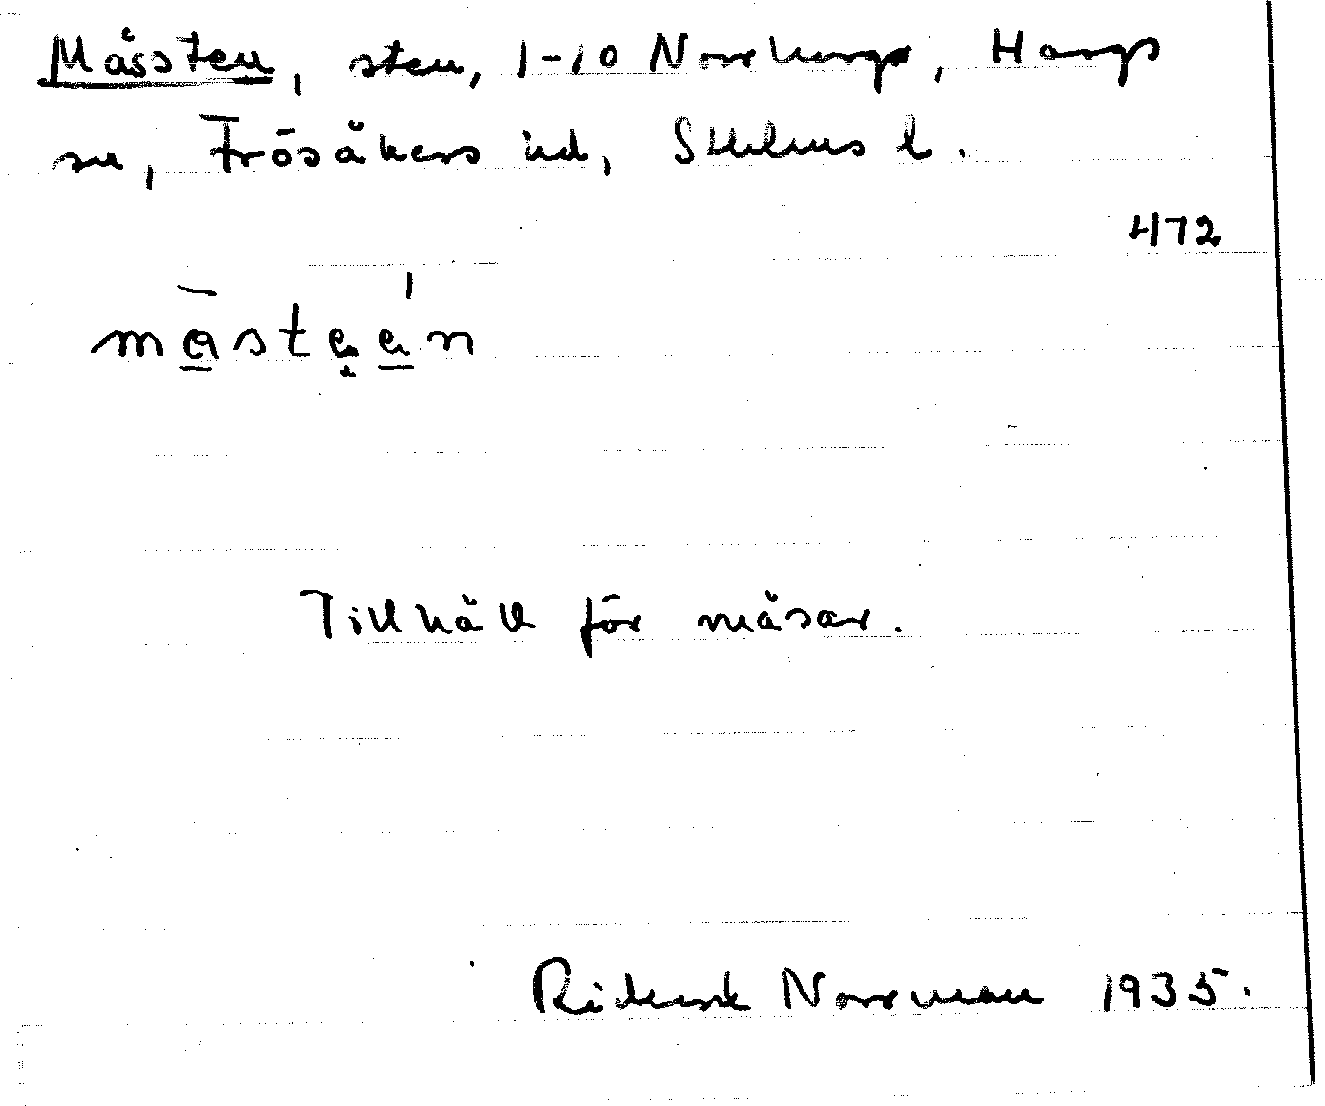 Måssten, sten, 1-10 Norrlunga, Hargs
sn, Frösåkers hd, Sthlms l.
472
mås teen
Tillhåll för måsar.
Rikard Norrman 1935.